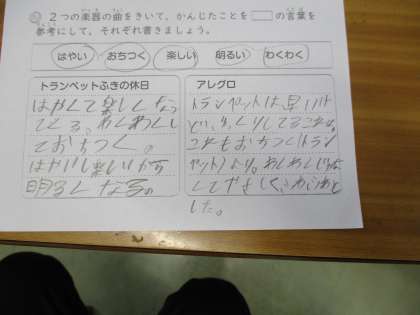 ２つの楽器の曲をきいて、かんじたことを□の言葉を
参考にして、それぞれ書きましょう。
はやい おちつく 楽しい 明るい わくわく
トランペットふきの休日
はやくて楽しくなっ
てくる。わくわくし
ておちつく。
はやいし楽しいから
明るくなるの
アレグロ
トランペットは、早いけ
ど、ゆっくりしてる
これもおちつく(トラン
ペット)より。わくわく
してやさしく、
した。